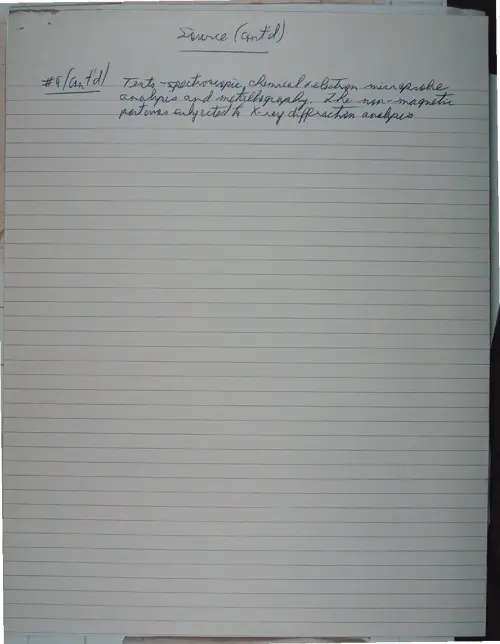 Source (cont'd)
#9 (cont'd) Tests - spectroscopic, chemical & electron microprobe
analysis and metallography. The non-magnetic
part was subjected to X-ray diffraction analysis.